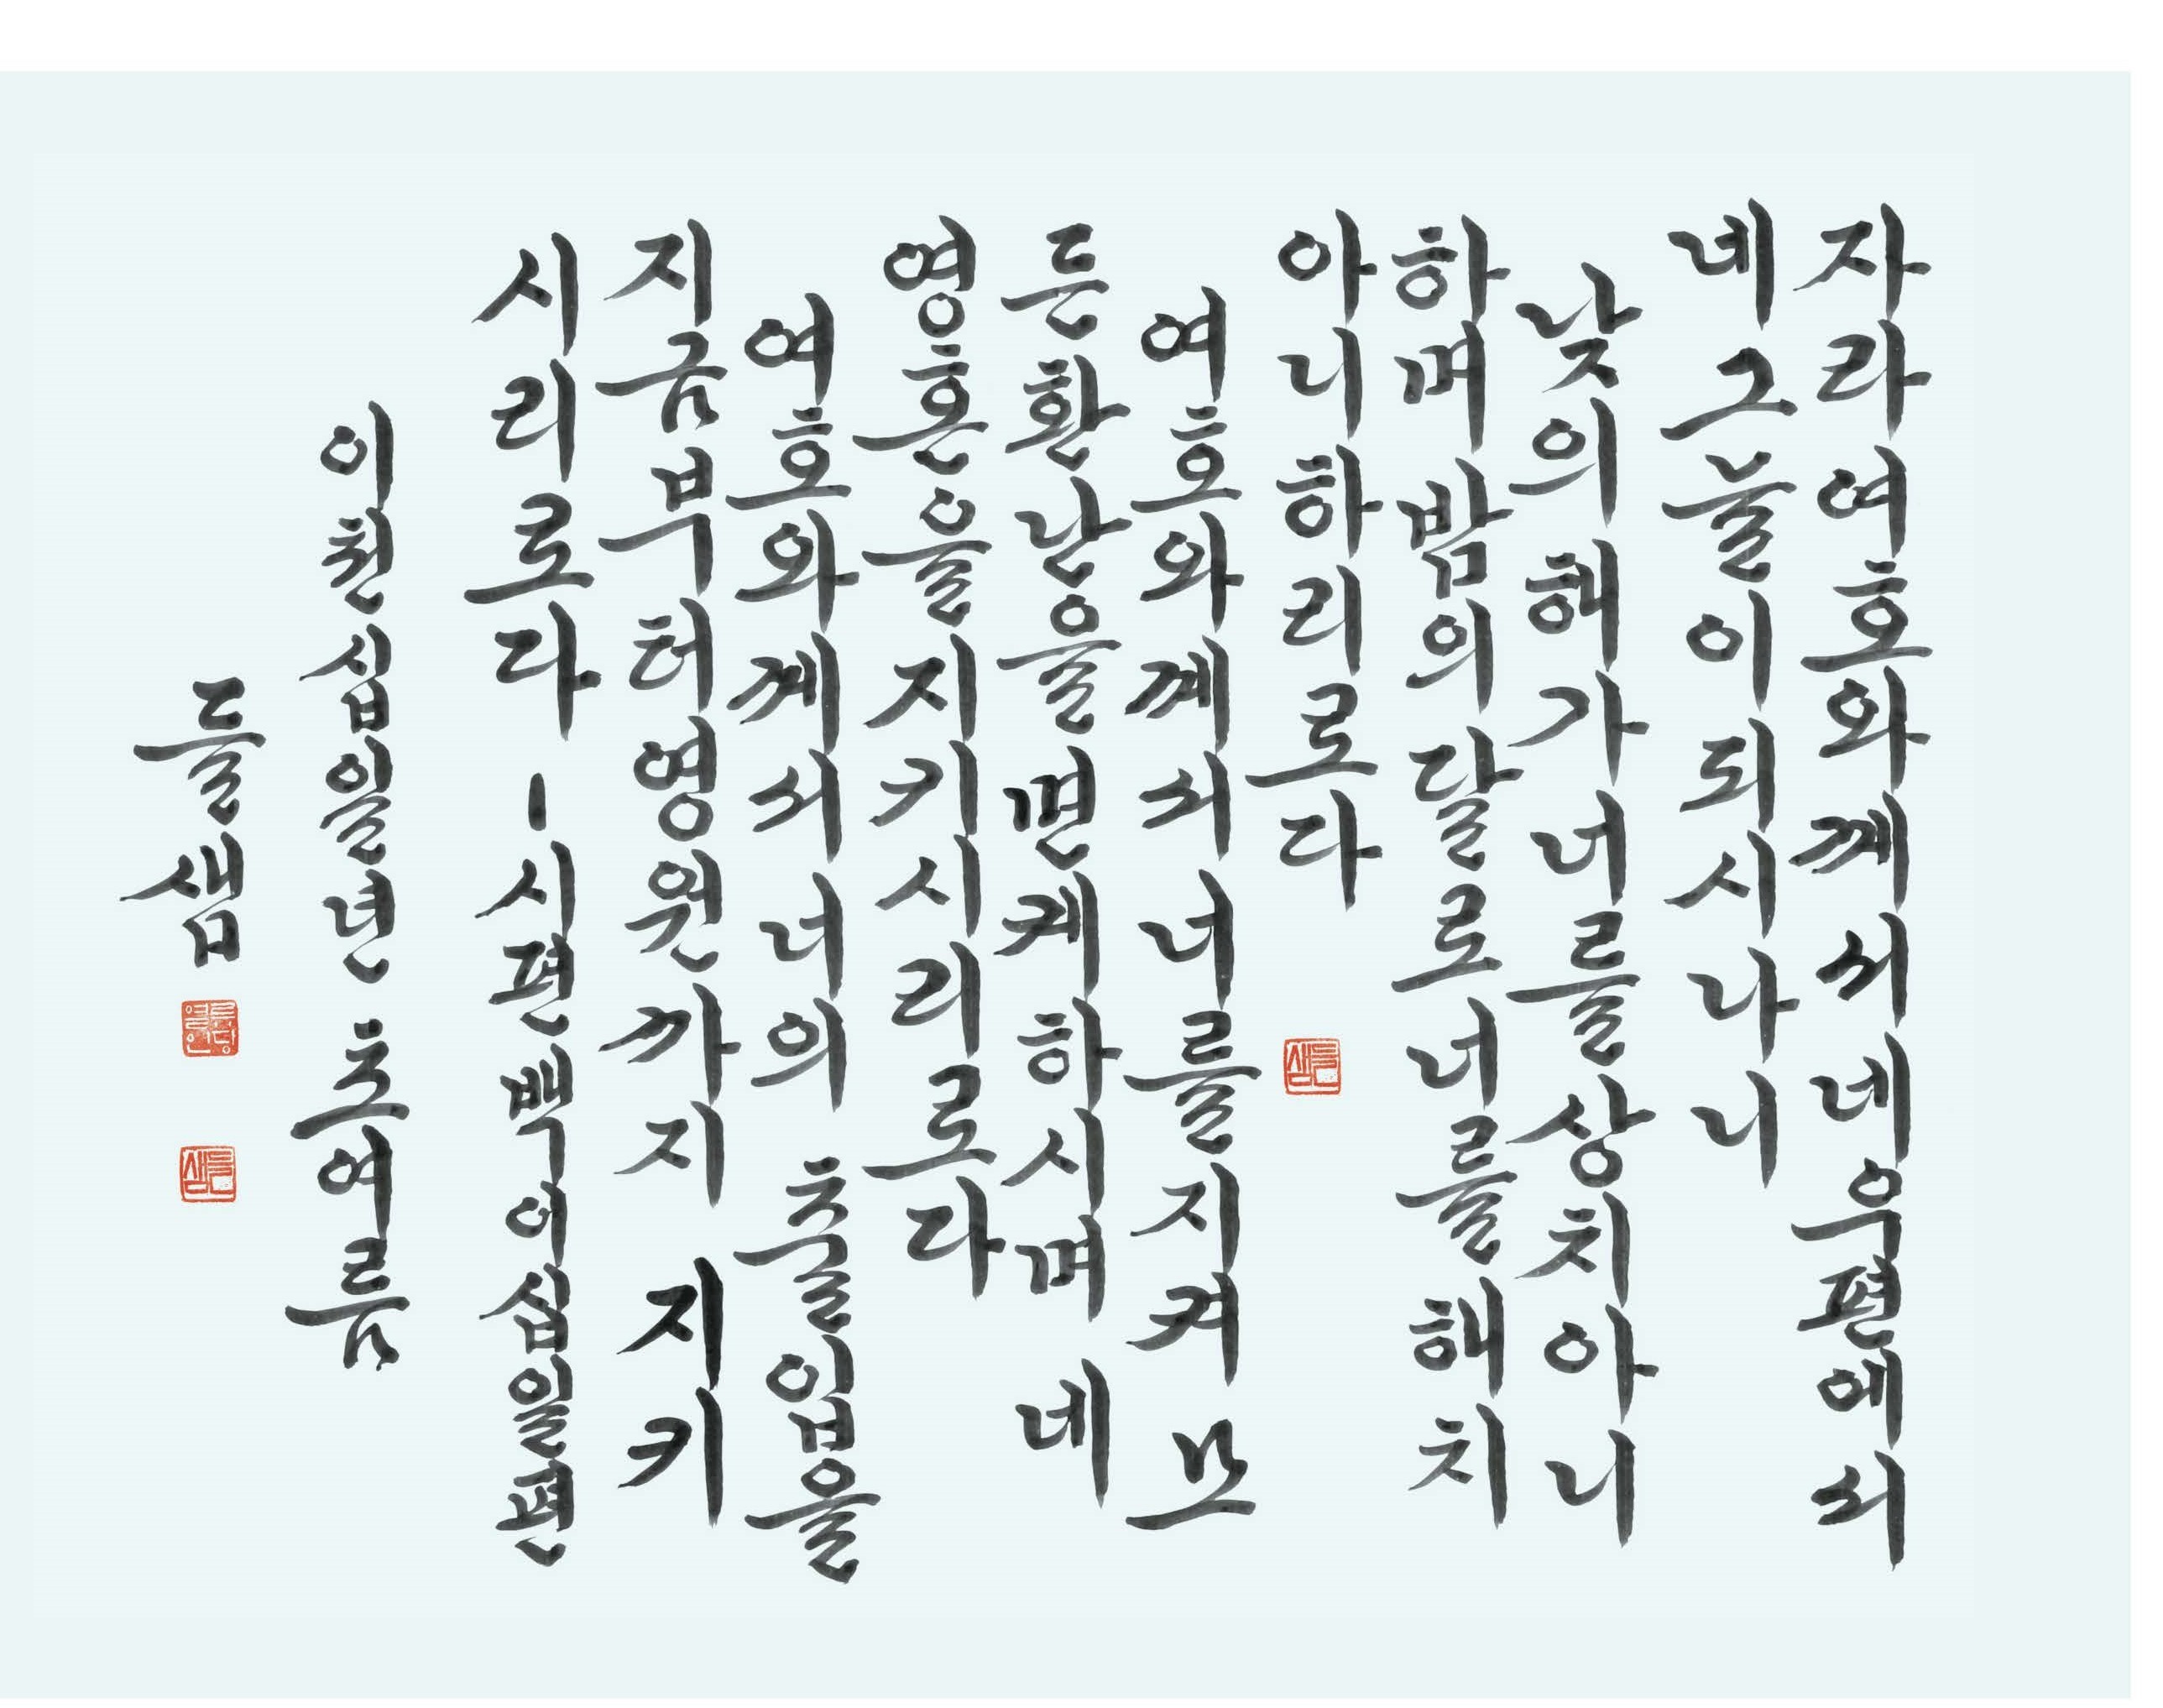 자라 여호와께서 네 우편에서
네 그늘이 되시나니
낮의 해가 너를 상치 아니
하며 밤의 달로 너를 해치
아니하리로다
들샘
여호와께서 너를 지켜 모
든 환난을 면케 하시며 네
영혼을 지키시리로다
여호와께서 너의 출입을
지금부터 영원까지 지키
시리로다 - 시편 백이십일편
이천십일년 초여름
들샘
들샘